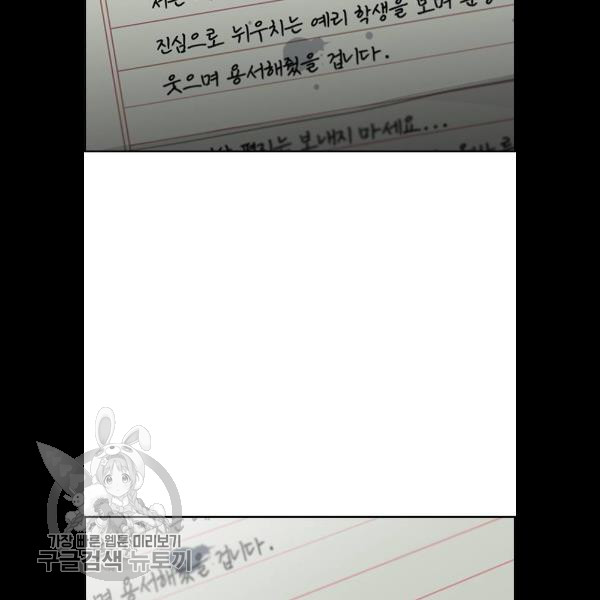 진심으로 뉘우치는 예리 학생을 보며 분명
웃으며 용서해줬을 겁니다.
편지는 보내지 마세요...
가장 빠른 웹툰 미리보기
구글검색 뉴토끼
며 용서해줬을 겁니다.